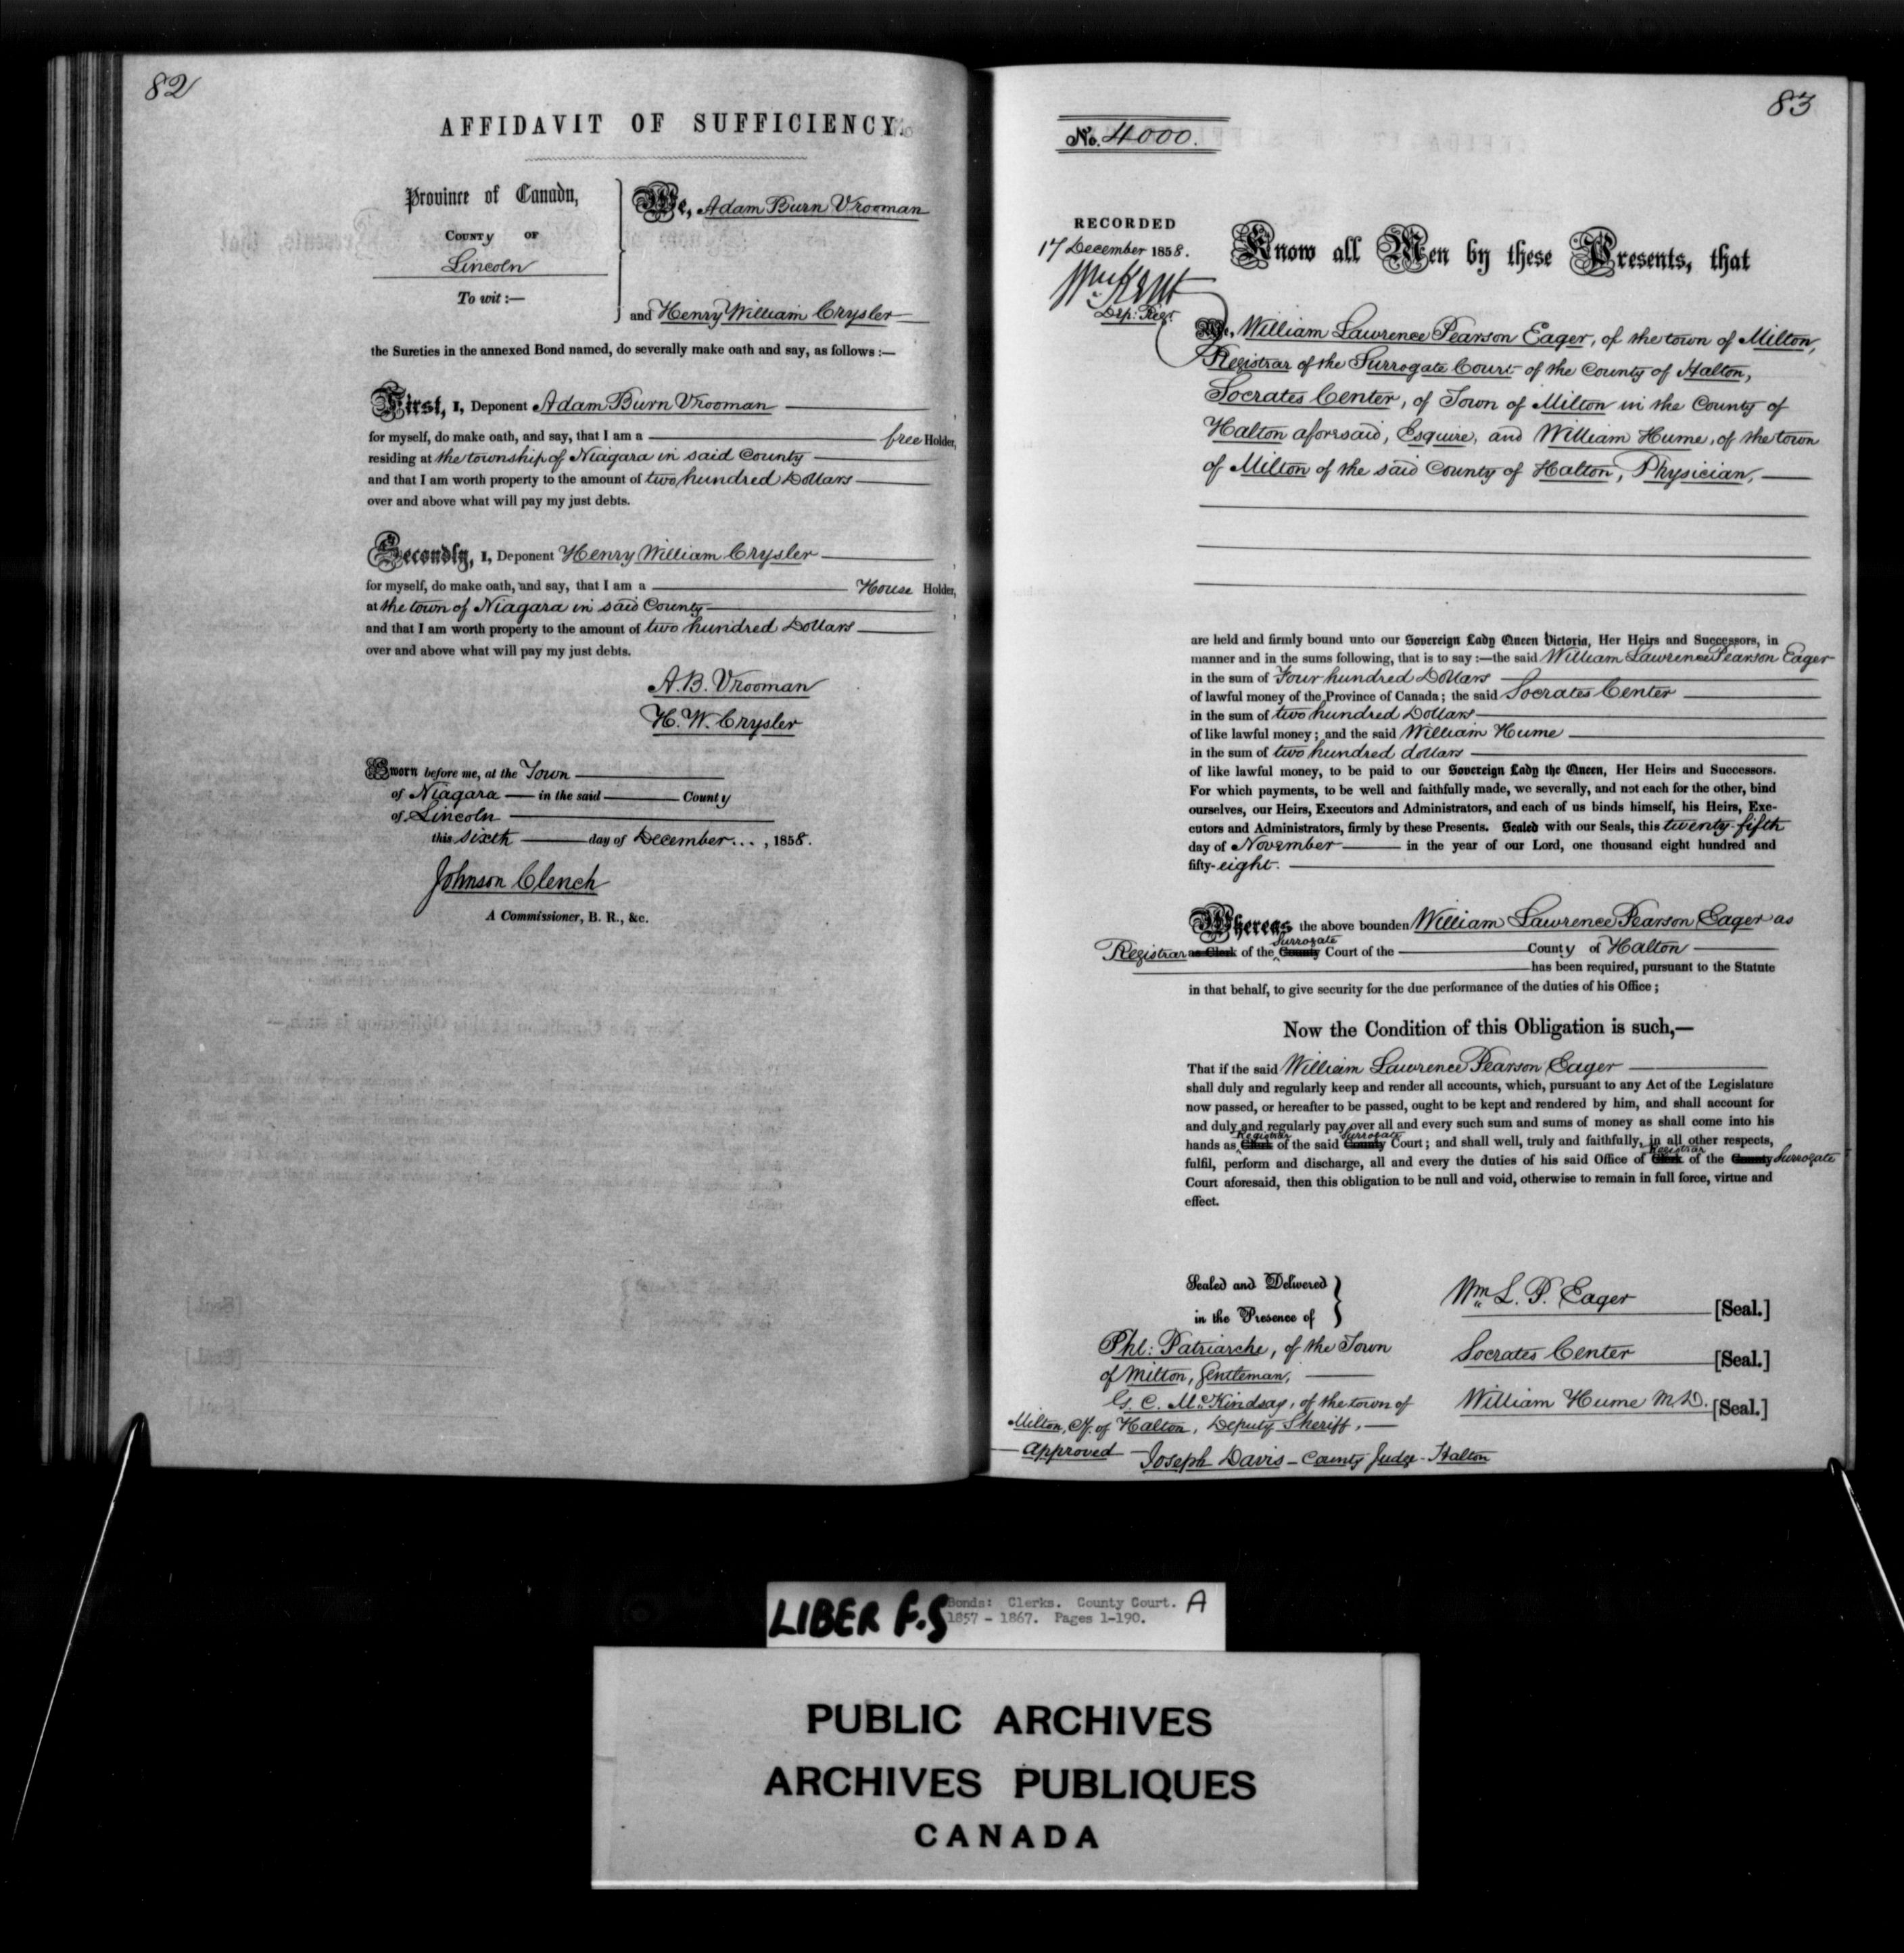 82
AFFIDAVIT OF SUFFICIENCY.
Province of Canada,
County of
Lincoln
To wit :—
We, Adam Burn Vrooman
and Henry William Crysler
the Sureties in the annexed Bond named, do severally make oath and say, as follows :—
First, I, Deponent Adam Burn Vrooman
for myself, do make oath, and say, that I am a free Holder,
residing at the township of Niagara in said County
and that I am worth property to the amount of two hundred Dollars
over and above what will pay my just debts.
Secondly, I, Deponent Henry William Crysler
for myself, do make oath, and say, that I am a House Holder,
at the town of Niagara in said County
and that I am worth property to the amount of two hundred Dollars
over and above what will pay my just debts.
A. B. Vrooman
H. W. Crysler
Sworn before me, at the Town
of Niagara — in the said County
of Lincoln
this sixth day of December... , 1858.
Johnson Clench
A Commissioner, B. R., &c.
83
No. 4000.
RECORDED
17 December 1858.
Wm Kent
Dep: Regr.
Know all Men by these Presents, that
We, William Lawrence Pearson Eager, of the town of Milton,
Registrar of the Surrogate Court of the County of Halton,
Socrates Center, of Town of Milton in the County of
Halton aforesaid, Esquire, and William Hume, of the town
of Milton of the said County of Halton, Physician,
are held and firmly bound unto our Sovereign Lady Queen Victoria, Her Heirs and Successors, in
manner and in the sums following, that is to say :—the said William Lawrence Pearson Eager
in the sum of Four hundred Dollars
of lawful money of the Province of Canada; the said Socrates Center
in the sum of two hundred Dollars
of like lawful money; and the said William Hume
in the sum of two hundred dollars
of like lawful money, to be paid to our Sovereign Lady the Queen, Her Heirs and Successors.
For which payments, to be well and faithfully made, we severally, and not each for the other, bind
ourselves, our Heirs, Executors and Administrators, and each of us binds himself, his Heirs, Exe-
cutors and Administrators, firmly by these Presents. Sealed with our Seals, this twenty-fifth
day of November in the year of our Lord, one thousand eight hundred and
fifty-eight.
Whereas the above bounden William Lawrence Pearson Eager as
Surrogate
Registrar as Clerk of the County Court of the County of Halton
has been required, pursuant to the Statute
in that behalf, to give security for the due performance of the duties of his Office ;
Now the Condition of this Obligation is such,—
That if the said William Lawrence Pearson Eager
shall duly and regularly keep and render all accounts, which, pursuant to any Act of the Legislature
now passed, or hereafter to be passed, ought to be kept and rendered by him, and shall account for
and duly and regularly pay over all and every such sum and sums of money as shall come into his
Registrar Surrogate
hands as Clerk of the said County Court; and shall well, truly and faithfully, in all other respects,
Registrar
fulfil, perform and discharge, all and every the duties of his said Office of Clerk of the County Surrogate
Court aforesaid, then this obligation to be null and void, otherwise to remain in full force, virtue and
effect.
Sealed and Delivered
in the Presence of
Phl: Patriarche, of the Town
of Milton, Gentleman,
G. C. McKindsay, of the town of
Milton, Cy. of Halton, Deputy Sheriff.
Wm L. P. Eager [Seal.]
Socrates Center [Seal.]
William Hume M.D. [Seal.]
approved — Joseph Davis — County Judge - Halton
LIBER F.S
Bonds: Clerks. County Court. A
1857 - 1867. Pages 1-190.
PUBLIC ARCHIVES
ARCHIVES PUBLIQUES
CANADA